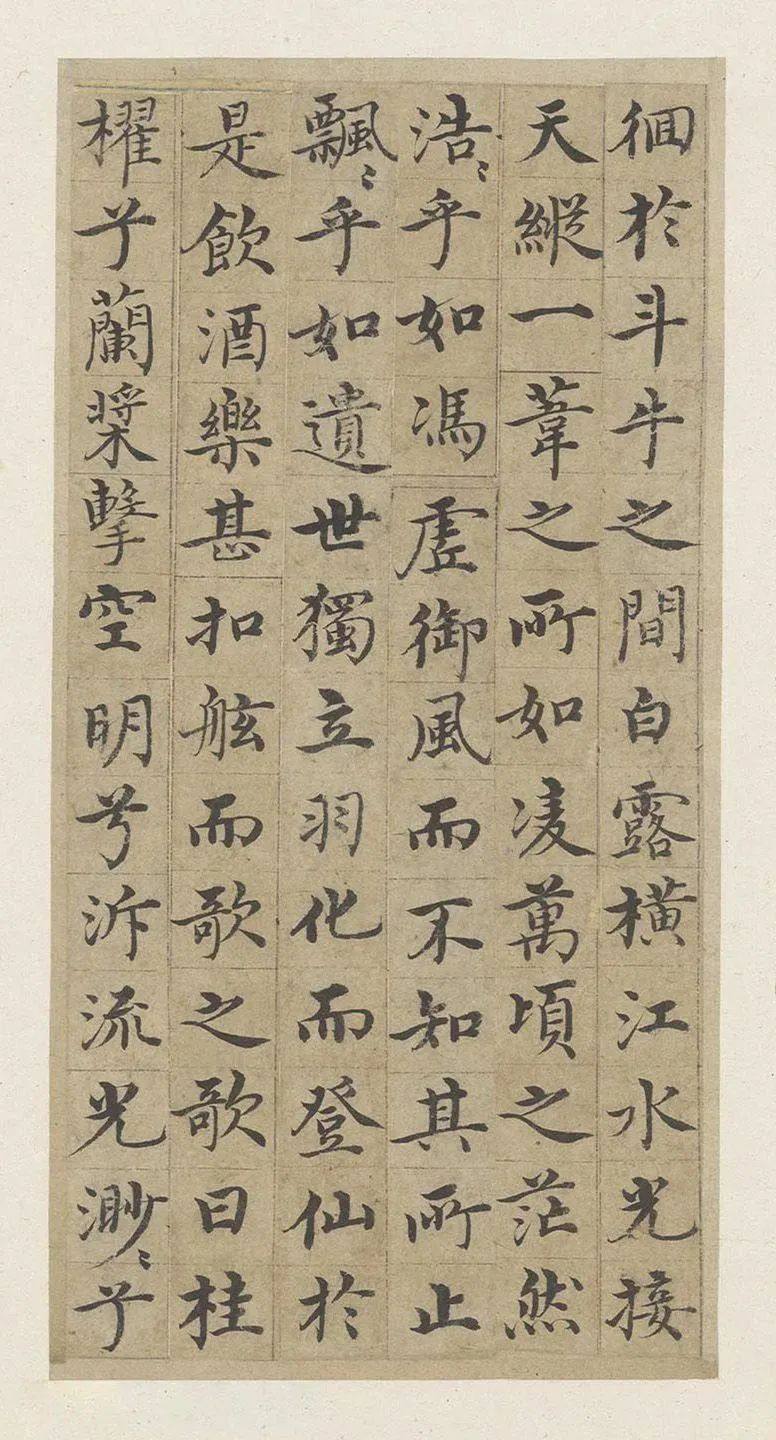 徊於斗牛之間白露橫江水光接
天縱一葦之所如凌萬頃之茫然
浩〻乎如馮虛御風而不知其所止
飄〻乎如遺世獨立羽化而登仙於
是飲酒樂甚扣舷而歌之歌曰桂
櫂兮蘭槳擊空明兮泝流光渺〻兮